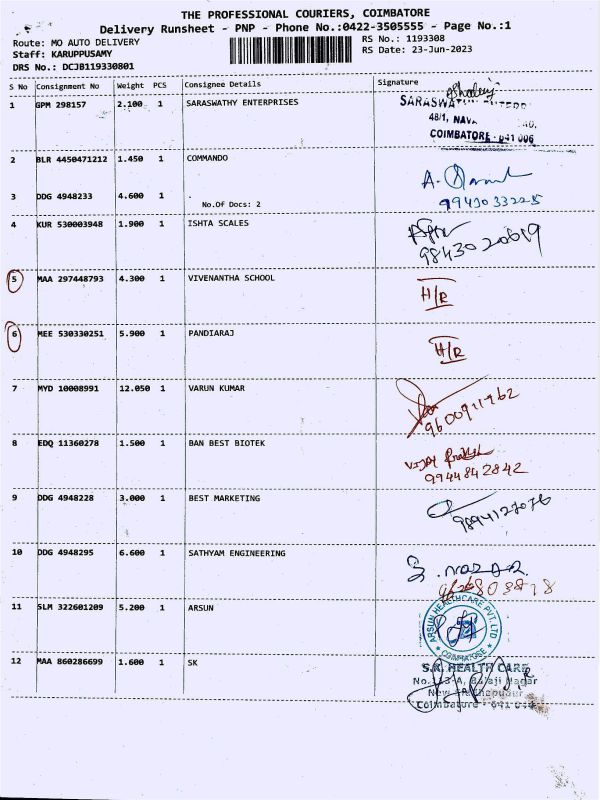 THE PROFESSIONAL COURIERS, COIMBATORE
Delivery Runsheet - PNP - Phone No.:0422-3505555 - Page No.:1
Route: MO AUTO DELIVERY RS No.: 1193308
Staff: KARUPPUSAMY RS Date: 23-Jun-2023
DRS No.: DCJB119330801
S No Consignment No Weight PCS Consignee Details Signature
1 GPM 298157 2.100 1 SARASWATHY ENTERPRISES
48/1, NAVA
COIMBATORE - 641 006
2 BLR 4450471212 1.450 1 COMMANDO
3 DDG 4948233 4.600 1 .
No.Of Docs: 2
9943033225
4 KUR 530003948 1.900 1 ISHTA SCALES
9843020619
5 MAA 297448793 4.300 1 VIVENANTHA SCHOOL H/R
6 MEE 530330251 5.900 1 PANDIARAJ H/R
7 MYD 10008991 12.050 1 VARUN KUMAR
9600911962
8 EDQ 11360278 1.500 1 BAN BEST BIOTEK
9944842842
9 DDG 4948228 3.000 1 BEST MARKETING
9894127076
10 DDG 4948295 6.600 1 SATHYAM ENGINEERING
11 SLM 322601209 5.200 1 ARSUN
ARSUN HEALTHCARE PVT. LTD
COIMBATORE
12 MAA 860286699 1.600 1 SK
S.K. HEALTH CARE
Balaji Nagar
Coimbatore - 641 0